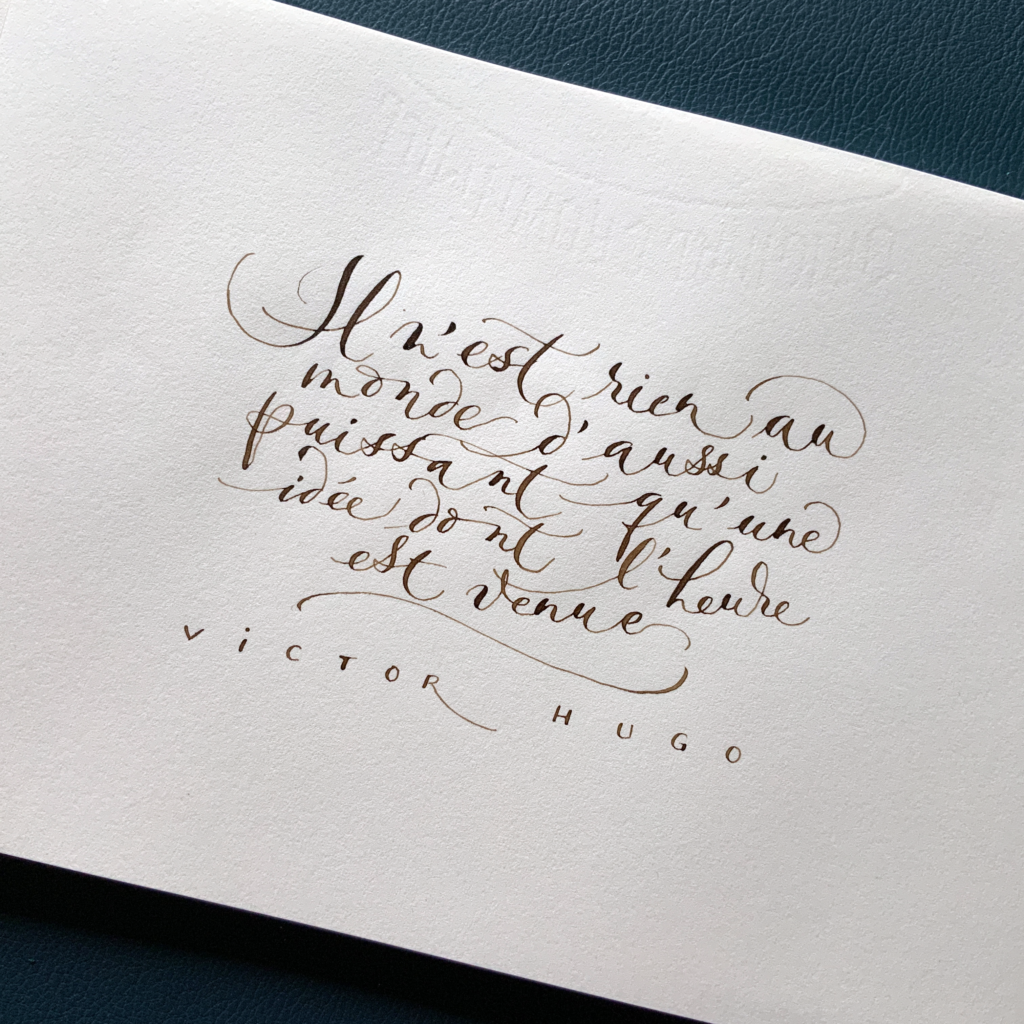 Il n'est rien au
monde d'aussi
puissant qu'une
idée dont l'heure
est venue
VICTOR HUGO